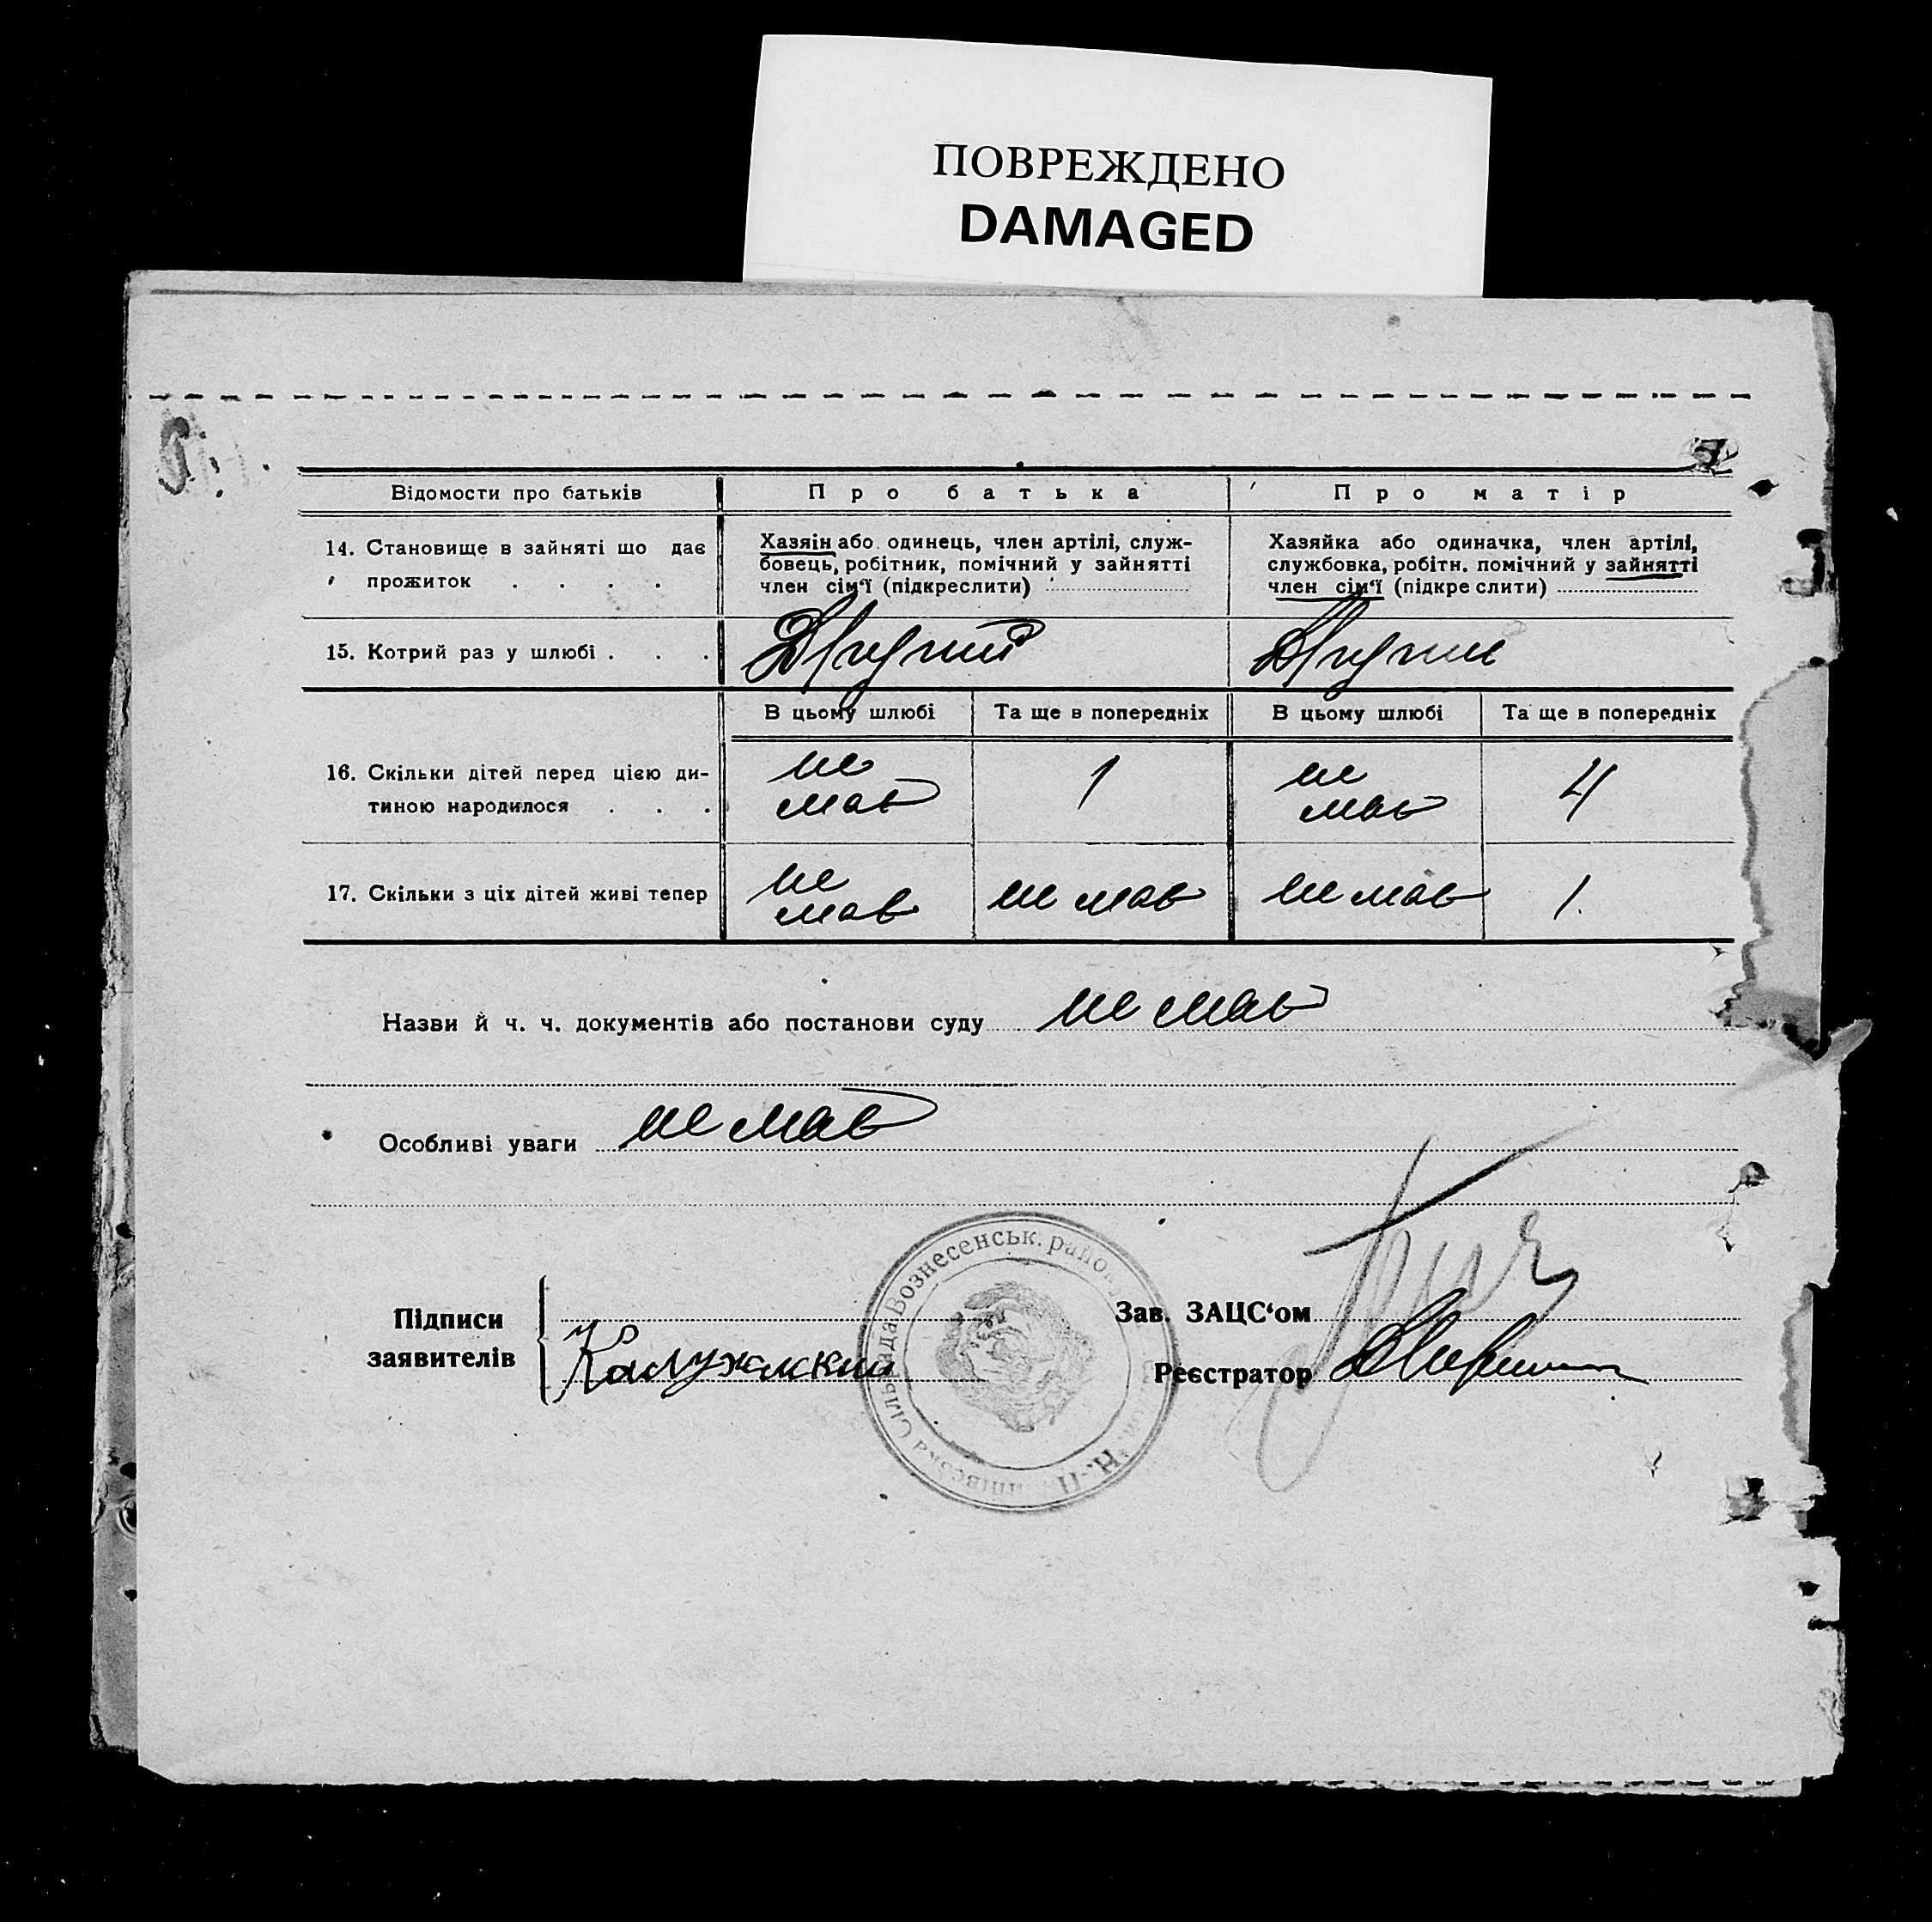 ПОВРЕЖДЕНО
DAMAGED
Відомости про батьків
Про батька
Про матір
14. Становище в зайняті що дає
прожиток . . . .
Хазяїн або одинець, член артілі, служ-
бовець, робітник, помічний у зайнятті
член сім'ї (підкреслити)
Хазяйка або одиначка, член артілі,
службовка, робітн. помічний у зайнятті
член сім'ї (підкре слити)
15. Котрий раз у шлюбі . . .
Другий
Другий
В цьому шлюбі
Та ще в попередніх
В цьому шлюбі
Та ще в попередніх
16. Скільки дітей перед цією ди-
тиною народилося . . .
не
мав
1
не
мав
4
17. Скільки з ціх дітей живі тепер
не
мав
не мав
не мав
1.
Назви й ч. ч. документів або постанови суду не мав
Особливі уваги не мав
Вознесенськ. район
Підписи
заявителів
Калужский
Зав. ЗАЦС'ом
Реєстратор